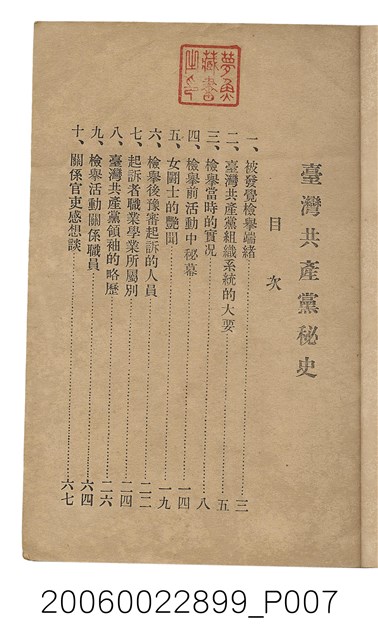 臺灣共產黨秘史
目次
一、被發覺檢舉端緒……三
二、臺灣共產黨組織系統的大要……五
三、檢舉當時的實況……八
四、檢舉前活動中秘幕……一四
五、女鬪士的艷聞……一九
六、檢舉後豫審起訴的人員……二二
七、起訴者職業學業所屬別……二四
八、臺灣共產黨領袖的略歷……二六
九、檢舉活動關係職員……六四
十、關係官吏感想談……六七
夢魚
藏書
之印
20060022899_P007